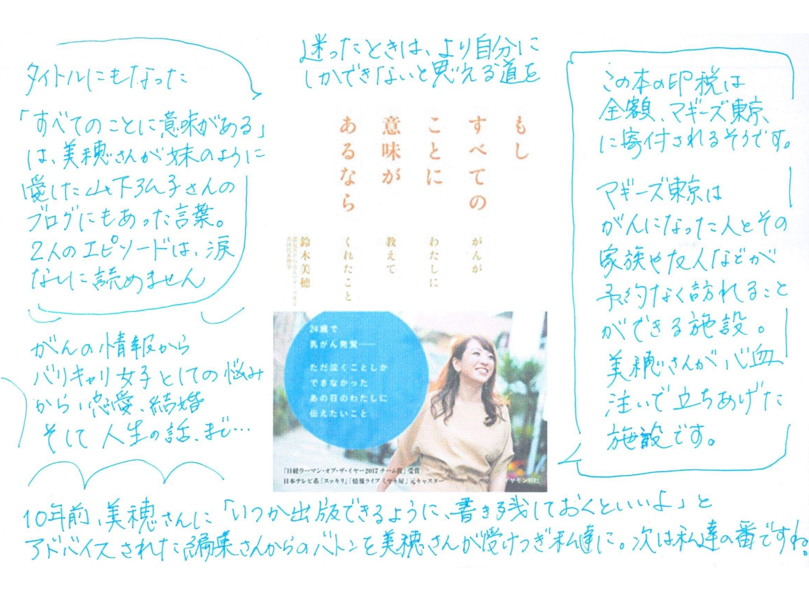 迷ったときは、より自分に
しかできないと思える道を
タイトルにもなった
「すべてのことに意味がある」
は、美穂さんが妹のように
愛した山下弘子さんの
ブログにもあった言葉。
2人のエピソードは、涙
なしに読めません
がんの情報から
バリキャリ女子としての悩み
から恋愛、結婚
そして人生の話まで…
もし
すべての
ことに
意味が
あるなら
がんが
わたしに
教えて
くれたこと
鈴木美穂
24歳で
乳がん発覚――
ただ泣くことしか
できなかった
あの日のわたしに
伝えたいこと
「日経ウーマン・オブ・ザ・イヤー2017 チーム賞」受賞
日本テレビ系「スッキリ」「情報ライブ ミヤネ屋」元キャスター
ダイヤモンド社
この本の印税は
全額、マギーズ東京
に寄付されるそうです。
マギーズ東京は
がんになった人とその
家族や友人などが
予約なく訪れること
ができる施設。
美穂さんが心血
注いで立ちあげた
施設です。
10年前、美穂さんに「いつか出版できるように、書き残しておくといいよ」と
アドバイスされた編集さんからのバトンを美穂さんが受けつぎ私達に。次は私達の番ですね。